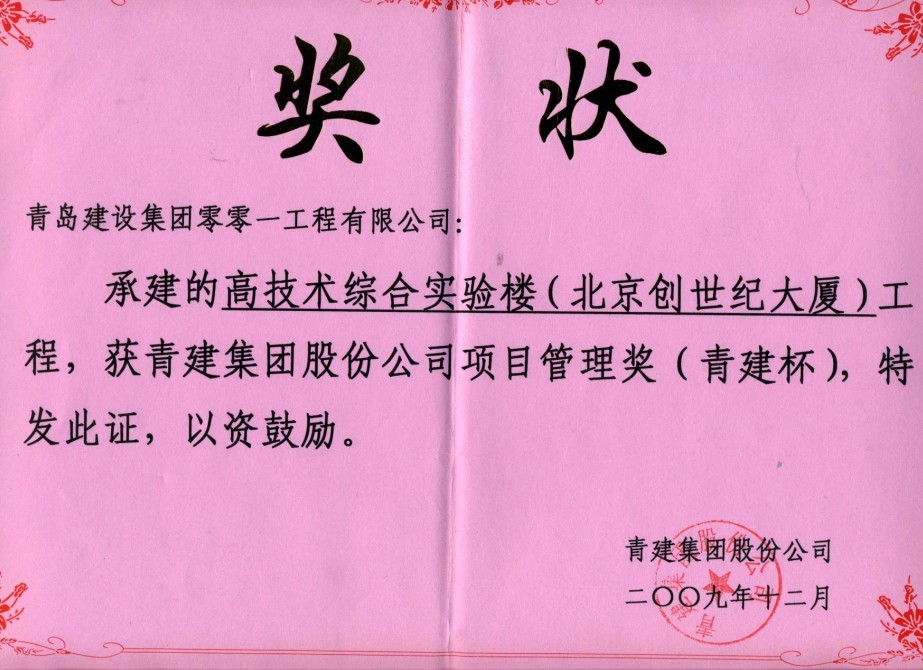 奖状
青岛建设集团零零一工程有限公司:
承建的高技术综合实验楼(北京创世纪大厦)工
程，获青建集团股份公司项目管理奖(青建杯)，特
发此证，以资鼓励。
青建集团股份公司
二〇〇九年十二月
青建集团股份公司